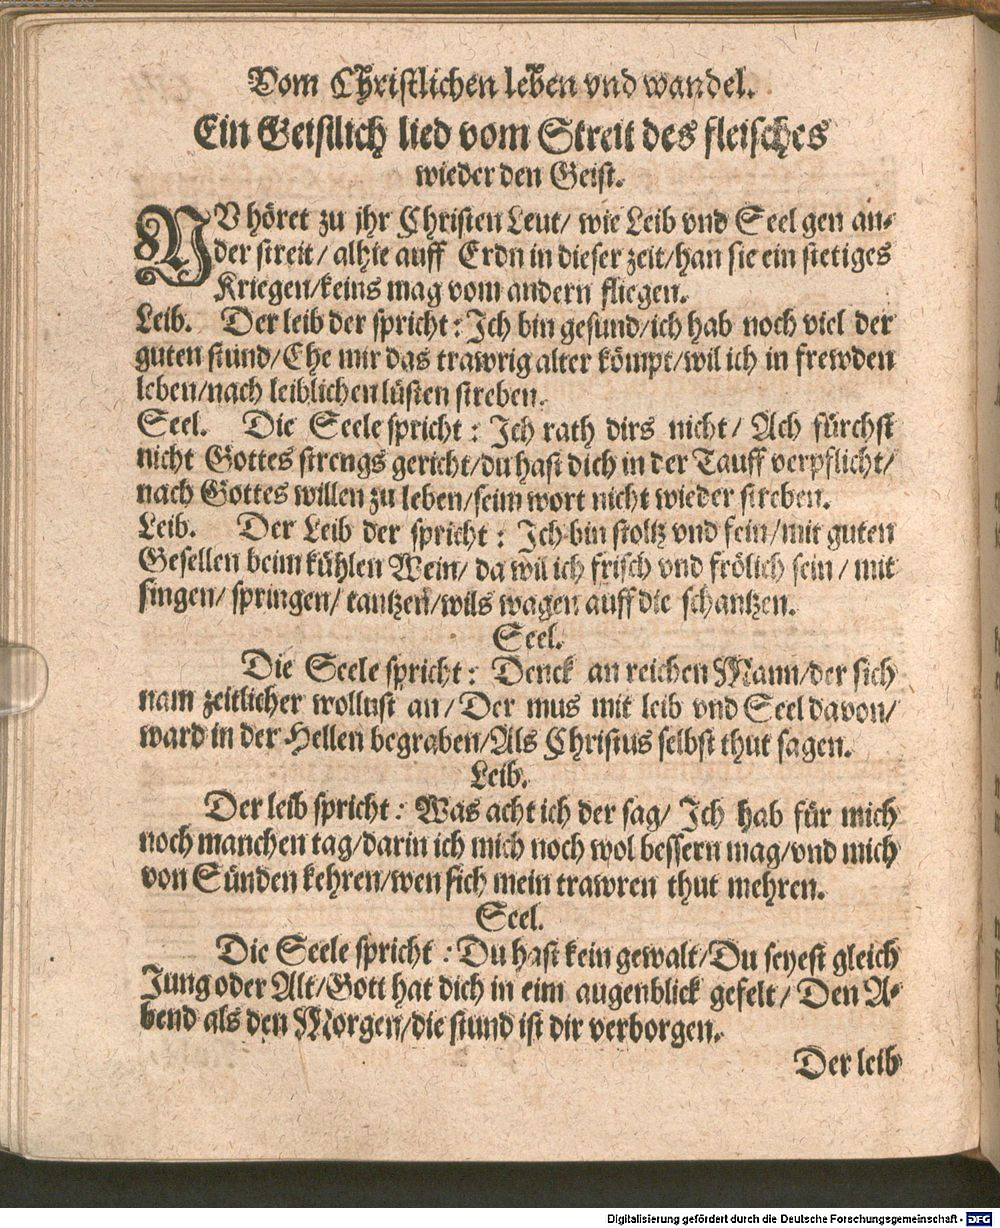 Vom Christlichen leben vnd wandel.
Ein Geistlich lied vom Streit des fleisches
wieder den Geist.
NV höret zu jhr Christen Leut/ wie Leib vnd Seel gen an-
der streit/ alhie auff Erdn in dieser zeit/han sie ein stetiges
Kriegen/keins mag vom andern fliegen.
Leib. Der leib der spricht: Ich bin gesund/ich hab noch viel der
guten stund/Ehe mir das trawrig alter kömpt/wil ich in frewden
leben/nach leiblichen lüsten streben.
Seel. Die Seele spricht: Ich rath dirs nicht/ Ach fürchst
nicht Gottes strengs gericht/du hast dich in der Tauff verpflicht/
nach Gottes willen zu leben/seim wort nicht wieder streben.
Leib. Der Leib der spricht: Ich bin stoltz vnd fein/mit guten
Gesellen beim kühlen Wein/ da wil ich frisch vnd frölich sein/ mit
singen/ springen/ tantzen/wils wagen auff die schantzen.
Seel.
Die Seele spricht: Denck an reichen Mann/der sich
nam zeitlicher wollust an/Der mus mit leib vnd Seel davon/
ward in der Hellen begraben/Als Christus selbst thut sagen.
Leib.
Der leib spricht: Was acht ich der sag/ Ich hab für mich
noch manchen tag/darin ich mich noch wol bessern mag/vnd mich
von Sünden kehren/wen sich mein trawren thut mehren.
Seel.
Die Seele spricht: Du hast kein gewalt/Du seyest gleich
Jung oder Alt/Gott hat dich in eim augenblick gefelt/ Den A-
bend als den Morgen/die stund ist dir verborgen.
Der leib
Digitalisierung gefördert durch die Deutsche Forschungsgemeinschaft - DFG